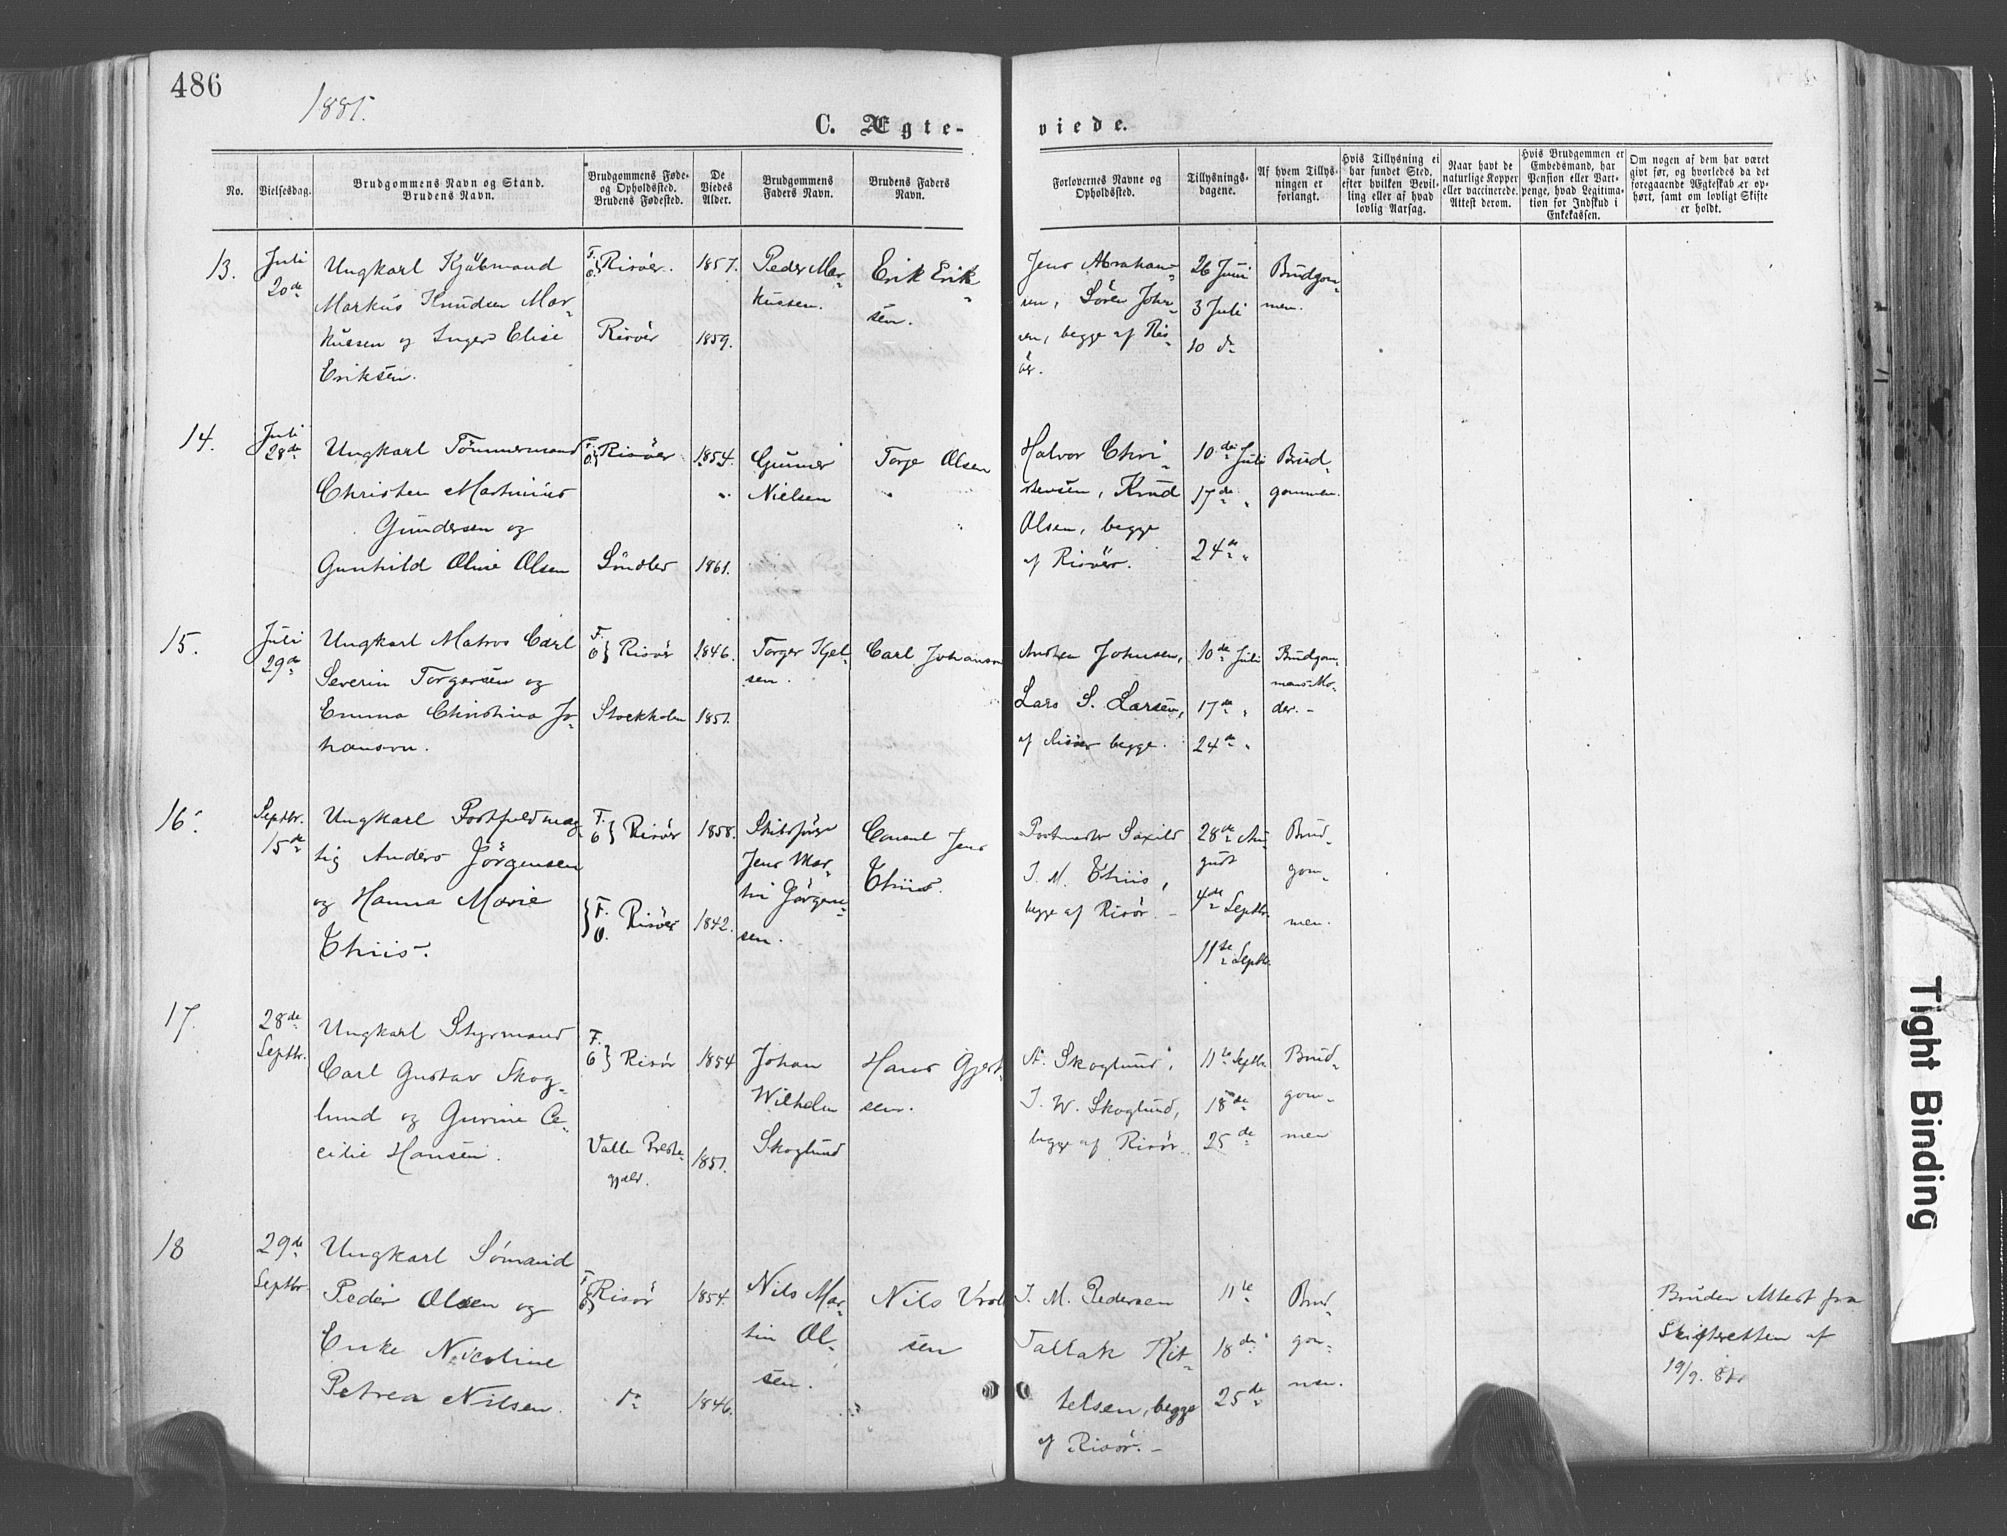 486
1881.
C. Ægte-
viede.
No.
Vielsesdag.
Brudgommens Navn og Stand.
Brudens Navn.
Brudgommens Føde-
og Opholdssted.
Brudens Fødested.
De
Viedes
Alder.
Brudgommens
Faders Navn.
Brudens Faders
Navn.
Forlovernes Navne og
Opholdssted.
Tillysnings-
dagene.
Af hvem Tillys-
ningen er
forlangt.
Hvis Tillysning ei
har fundet Sted,
efter hvilken Bevil-
ling eller af hvad
lovlig Aarsag.
Naar havt de
naturlige Kopper
eller vaccinerede.
Attest derom.
Hvis Brudgommen er
Embedsmand, har
Pension eller Vart-
penge, hvad Legitima-
tion for Indskud i
Enkekassen.
Om nogen af dem har været
givt før, og hvorledes da det
foregaaende Ægteskab er op-
hørt, samt om lovligt Skifte
er holdt.
13.
Juli
20de
Ungkarl Kjøbmand
Markus Knudsen Mar-
kussen og Inger Elise
Eriksen.
F.
O.} Risöer.
Risöer
1857.
1859.
Peder Mar-
kussen.
Erik Erik-
sen.
Jens Abraham-
sen, Sören John-
sen, begge af Ris-
öer.
26 Juni
3 Juli
10 do
Brudgom-
men.
14.
Juli
28de
Ungkarl Tömmermand
Christen Martinius
Gundersen og
Gunhild Oline Olsen
F.
O.} Risöer
Söndler
1854.
1861.
Gunner
Nielsen
Torje Olsen
Halvor Chri-
stensen, Knud
Olsen, begge
af Risöer.
10de Juli
17de "
24de "
Brud-
gommen.
15.
Juli
29de
Ungkarl Matros Carl
Severin Torgersen og
Emma Christina Jo-
hanson.
F.
O} Risöer
Stockholm
1846.
1851.
Torger Kjel-
sen.
Carl Johanson
Andrea Johnsen,
Lars S. Larsen,
af Risöer begge.
10de Juli
17de "
24de "
Brudgom-
mens Mo-
der. -
16.
Septbr.
15de
Ungkarl Postfuldmæg-
tig Anders Jörgensen
og Hanna Marie
Thiis.
F.
O} Risöer
F.
O.} Risöer
1858.
1842.
Skibsförer
Jens Mar-
tin Jörgen-
sen.
Consul Jens
Thiis.
Postmester Saxild
J. M. Thiis,
begge af Risör. -
28de Au-
gust
4de Septbr.
11te Septbr.
Brud-
gom-
men.
17.
28de
Septbr.
Ungkarl Styrmand
Carl Gustav Skog-
lund og Gurine Ce-
cilie Hansen.
F.
O} Risör
Valle Præste-
gjæld.
1854
1851.
Johan
Wilhelm
Skoglund
Hans Gjert-
sen.
A. Skoglund,
J. W. Skoglund,
begge af Risör.
11te Septbr.
18de
25de
Brud-
gom-
men
18
29de
Septbr
Ungkarl Sömand
Peder Olsen og
Enke Nicoline
Petrea Nilsen.
F.
O} Risör
do
1854.
1846.
Nils Mar-
tin Ol-
sen.
Nils Vrol-
sen
J. M. Pedersen
Tallak Kit-
telsen, begge
af Risör. -
11te
18de
25de
Brud-
gom-
men.
Bruden Attest fra
Skifteretten af
19/9. 81.
Tight Binding